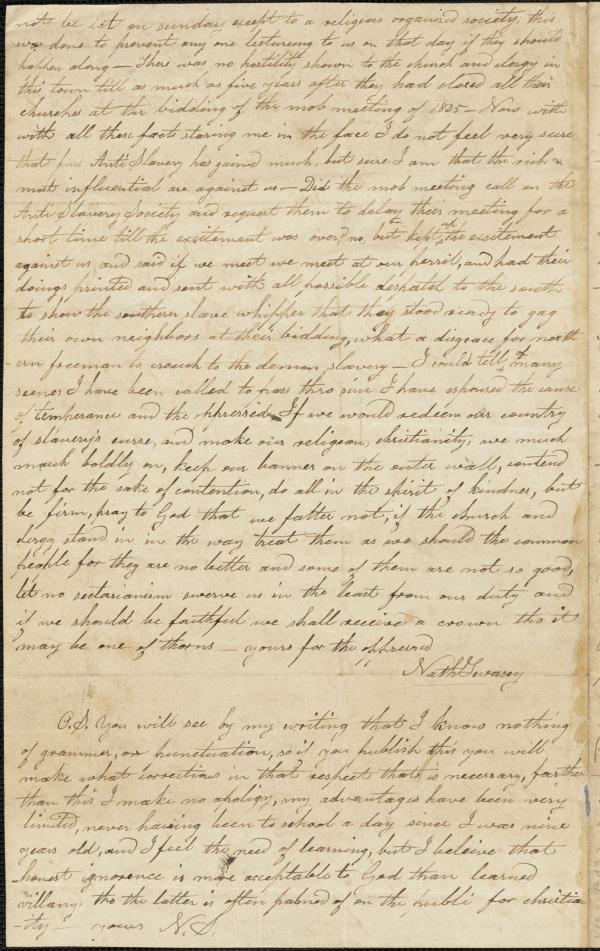 not be let on sunday except to a religious organised society, this
was done to prevent any one lectureing to us on that day if they should
happen along — There was no hostility shown to the church and clergy in
this town till as much as five years after they had closed all their
churches at the bidding of the mob meeting of 1835 — Now with
with all these facts staring me in the face I do not feel very sure
that pure Anti Slavery has gained much, but sure I am that the rich &
most influential are against us — Did the mob meeting call on the
Anti Slavery Society and request them to delay their meeting for a
short time till the excitement was over, no, but kept up the excitement
against us and said if we meet we meet at our perril, and had their
doings printed and sent with all possible despatch to the south
to show the southern slave whipper that they stood ready to gag
their own neighbors at their bidding, what a disgrace for north
ern freeman to crouch to the demon, slavery — I could tell of many
scenes I have been called to pass thro sinc I have espoused the cause
of temperance and the oppressed. If we would redeem our country
of slavery's curse, and make our religeon, christianity, we much
march boldly on, keep our banner on the outer wall, contend
not for the sake of contention, do all in the spirit of kindnes, but
be firm, pray to God that we falter not, if the church and
clergy stand in in the way treat them as we should the common
people for they are no better and some of them are not so good,
let no sectarianism swerve us in the least from our duty and
if we should be faithful we shall receive a crown tho it
may be one of thorns — yours for the oppressed
Nath Swasey
P.S. You will see by my writing that I know nothing
of grammer, or punctuation, so if you publish this you will
make what corrections in that respect that is necessary, farther
than this I make no apoligy, my advantages have been very
limited, never haising been to school a day since I was nine
years old, and I feel the need of learning, but I beleive that
honest ignorence is more acceptable to God than learned
villany tho the latter is often palmed of on the publi for christia
-ity — yours N. S.